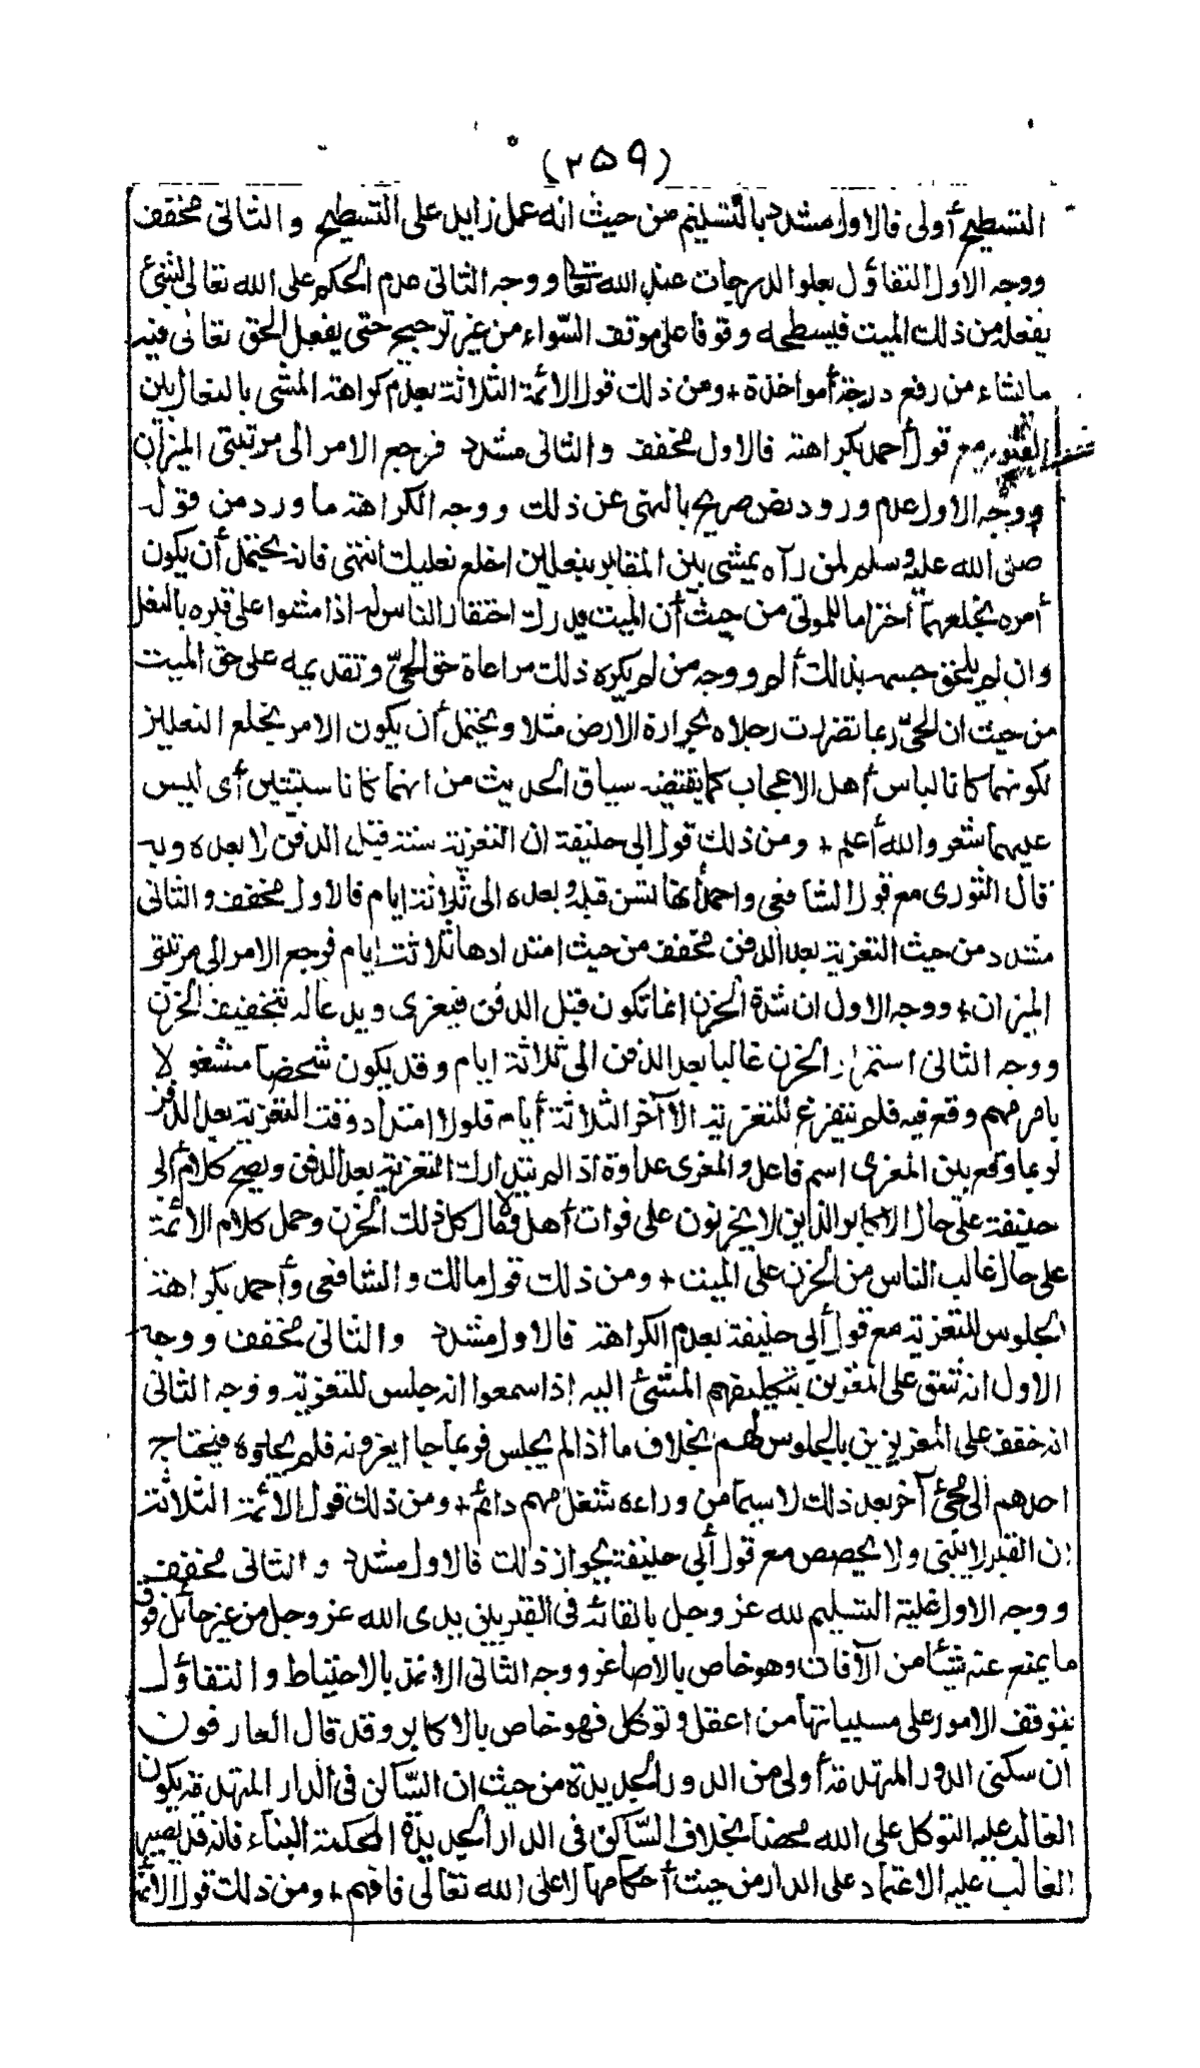 (٢٥٩)
التسطيح أولى فالاول مشدد بالتسنيم من حيث انه عمل زايد على التسطيح والثانى مخفف
ووجه الاول التفاؤل بعلو الدرجات عند الله تعالى ووجه الثانى عدم الحكم على الله تعالى بشئ
يفعله من ذلك الميت فيسطحه وقوفا على موقف السّواء من غير ترجيح حتى يفعل الحق تعالى فيه
مايشاء من رفع درجة أمواخذة + ومن ذلك قول الائمة الثلاثة بعدم كراهة المشى بالنعال بين
القبور مع قول أحمد بكراهته فالاول مخفف والثانى مشدد فرجع الامر الى مرتبتى الميزان
ووجه الاول عدم ورود نص صريح بالنهى عن ذلك ووجه الكراهة ماورد من قوله
صلى الله عليه وسلم لمن رآه يمشى بين المقابر بنعلين اخلع نعليك انتهى فانه يحتمل أن يكون
أمره بخلعهما احتراما للموتى من حيث أن الميت يدرك احتقار الناس له اذا مشوا على قبره بالنعل
وان لم يلحق جسمه بذلك ألم ووجه من لم يكره ذلك مراعاة حق الحىّ وتقديمه على حق الميت
من حيث ان الحىّ ربما تضررت رجلاه بحرارة الارض مثلا ويحتمل أن يكون الامر بخلع النعلين
لكونهما كانا لباس أهل الاعجاب كما يقتضيه سياق الحديث من انهما كانا سبتيتين أى ليس
عليهما شعر والله أعلم + ومن ذلك قول ابى حنيفة ان التعزية سنة قبل الدفن لابعده وبه
قال الثورى مع قول الشافعى واحمد أنها تسن قبله وبعده الى ثلاثة ايام فالاول مخفف والثانى
مشدد من حيث التعزية بعد الدفن مخفف من حيث امتدادها ثلاثة ايام فرجع الامر الى مرتبتى
الميزان + ووجه الاول ان شدة الحزن انما تكون قبل الدفن فيعزى ويدعاله بتخفيف الحزن
ووجه الثانى استمرار الحزن غالبا بعد الدفن الى ثلاثة ايام وقد يكون شخصا مشغولا
بامر مهم وقع فيه فلم يتفرغ للتعزية الا آخر الثلاثة أيام فلولا امتداد وقت التعزية بعد الدفن
لربما وقع بين المعزى اسم فاعل والمعزى عداوة اذا لم يتدارك التعزية بعد الدفن ويصح كلام أبى
حنيفة على حال الاكابر الذين لا يحزنون على فوات أهل ولامال كل ذلك الحزن وحمل كلام الائمة
على حال غالب الناس من الحزن على الميت + ومن ذلك قول مالك والشافعى وأحمد بكراهة
الجلوس للتعزية مع قول أبى حنيفة بعدم الكراهة فالاول مشدد والثانى مخفف ووجه
الاول انه شق على المعزين بتكليفهم المشئ اليه إذا سمعوا انه جلس للتعزية ووجه الثانى
انه خفف على المعزيين بالجلوس لهم بخلاف ما اذا لم يجلس فربما جاؤا يعزونه فلم يجدوه فيحتاج
احدهم الى مجئ آخر بعد ذلك لاسيما من وراءه شغل مهم دائم + ومن ذلك قول الائمة الثلاثة
ان القبر لا يبنى ولا يجصص مع قول أبى حنيفة بجواز ذلك فالاول مشدد والثانى مخفف
ووجه الاول غلبة التسليم لله عز وجل بالقائه فى القبر بين يدى الله عز وجل من غير حائل فوق
ما يمنع عنه شيئا من الآفات وهو خاص بالاصاغر ووجه الثانى الاخذ بالاحتياط والتفاؤل
بتوقف الامور على مسبباتها من اعقل وتوكل فهو خاص بالاكابر وقد قال العارفون
ان سكنى الدور المهتدمة أولى من الدور الجديدة من حيث ان السّاكن فى الدار المهتدمة يكون
الغالب عليه التوكل على الله محضا بخلاف السّاكن فى الدار الجديدة المحكمة البناء فانه قد يصير
الغالب عليه الاعتماد على الدار من حيث أحكامها لا على الله تعالى فافهم + ومن ذلك قول الائمة